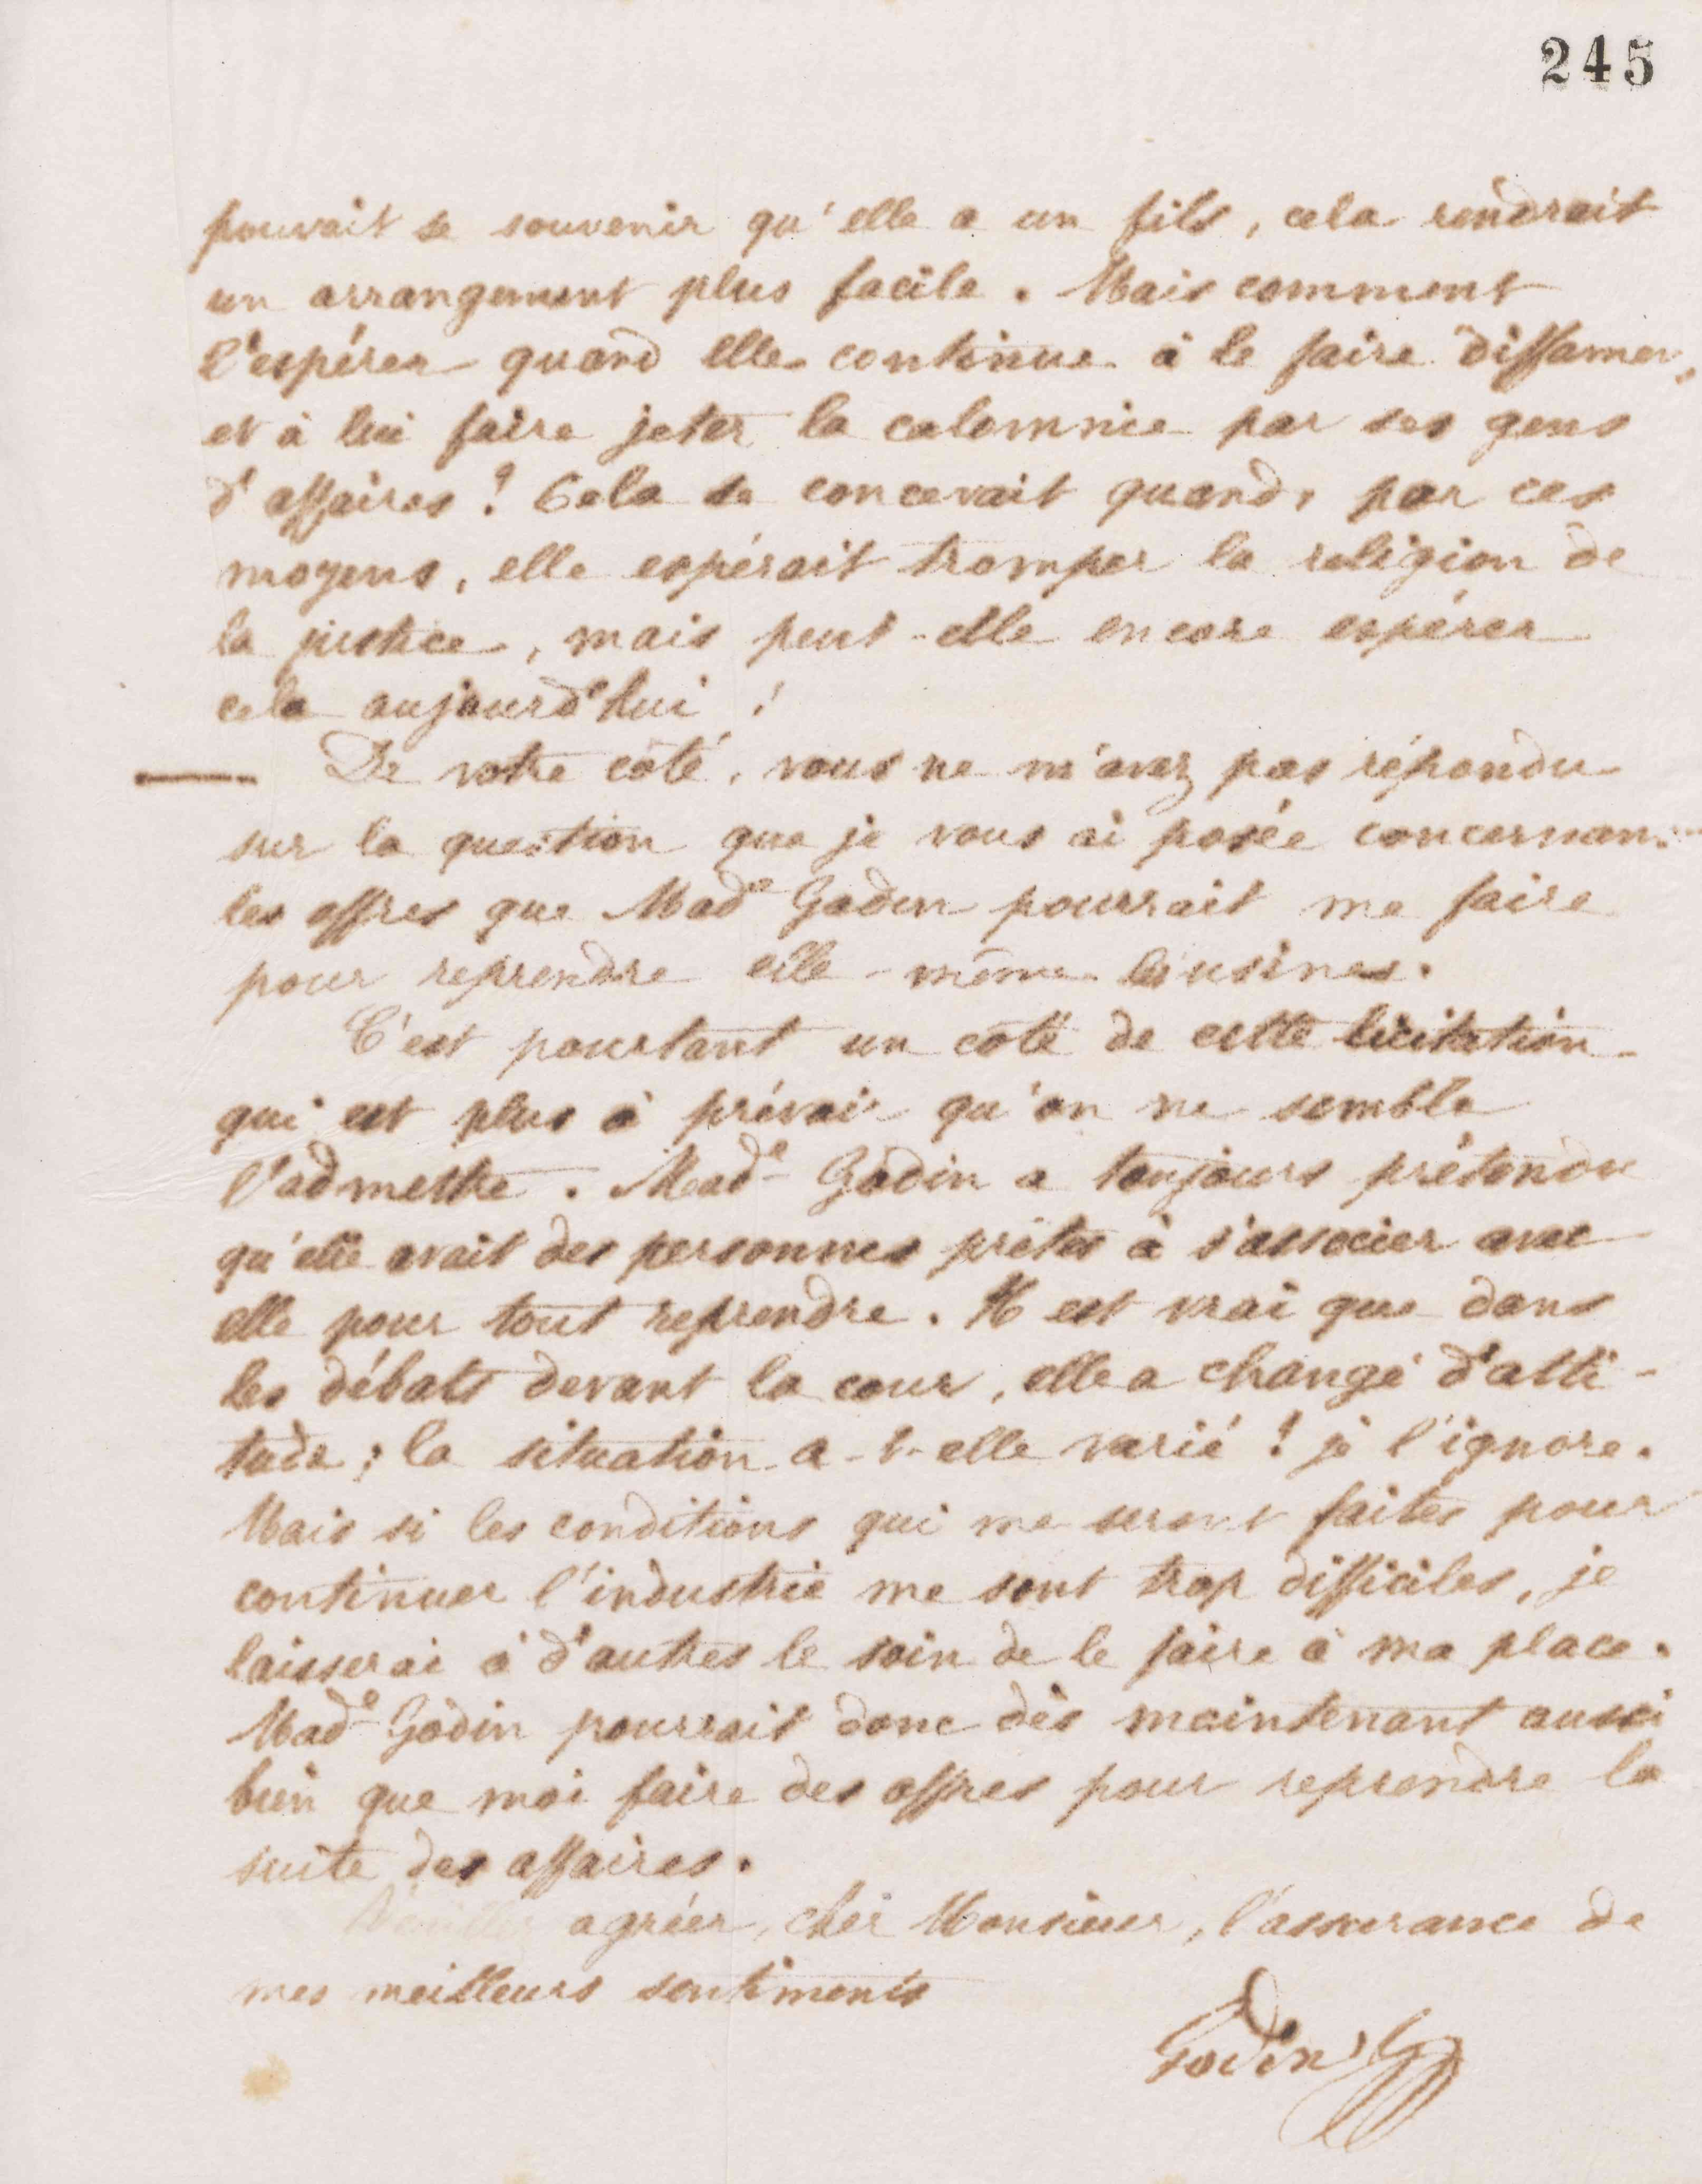 245
pouvait se souvenir qu'elle a un fils, cela rendrait
un arrangement plus facile. Mais comment
l'espérer quand elle continue à le faire diffamer,
et à lui faire jeter la calomnie par ses gens
d'affaires ? Cela se concevait quand, par ces
moyens, elle espérait tromper la religion de
la justice, mais peut-elle encore espérer
cela aujourd'hui !
— De votre côté, vous ne m'avez pas répondu
sur la question que je vous ai posée concernan
les offres que Made Godin pourrait me faire
pour reprendre elle-même les usines.
C'est pourtant un côté de cette licitation
qui est plus à prévoir qu'on ne semble
l'admettre. Made Godin a toujours prétendu
qu'elle avait des personnes prêtes à s'associer avec
elle pour tout reprendre. Il est vrai que dans
les débats devant la cour, elle a changé d'atti-
tude ; la situation a-t-elle varié ? je l'ignore.
Mais si les conditions qui me seront faites pour
continuer l'industrie me sont trop difficiles, je
laisserai à d'autres le soin de le faire à ma place.
Made Godin pourrait donc dès maintenant aussi
bien que moi faire des offres pour reprendre la
suite des affaires.
Veuillez agréer, cher Monsieur, l'assurance de
mes meilleurs sentiments
Godin